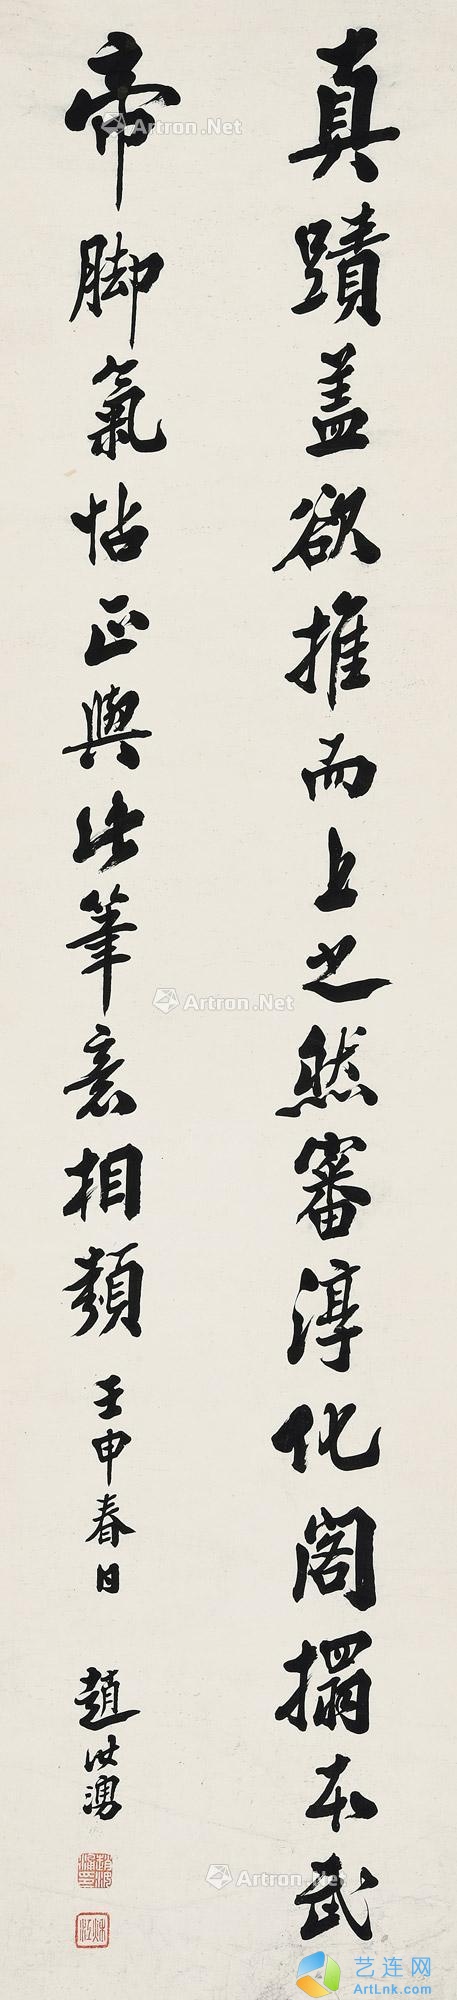 真蹟蓋欲推而上之然審淳化閣搨本武
帝脚氣帖正與此筆意相類
壬申春日 趙世湧
Artron.Net
Artron.Net
Artron.Net
Artron.Net
艺连网
ArtLnk.com